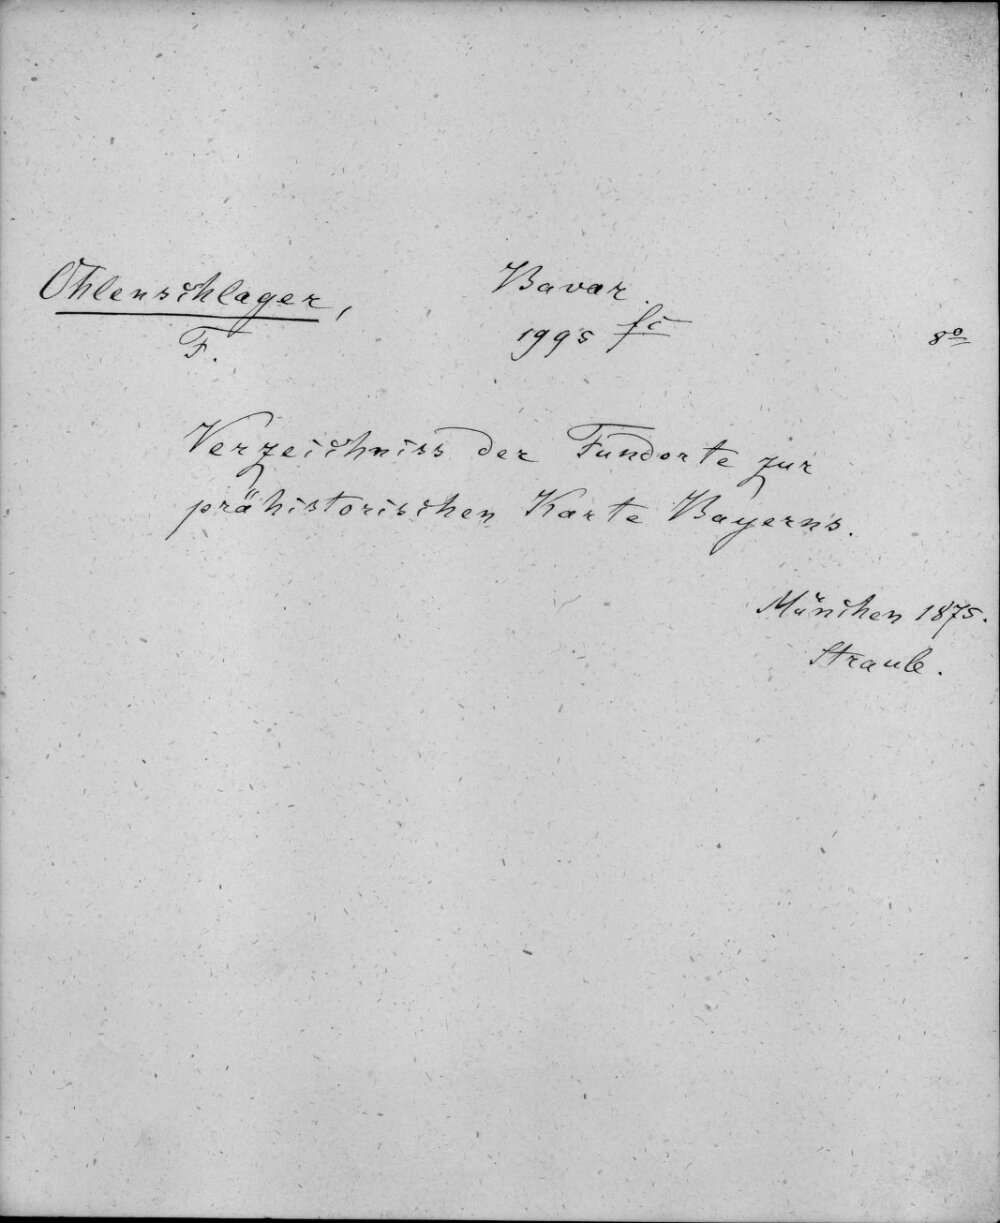 Ohlenschlager,
F.
Bavar.
1995 fc
8º
Verzeichniss der Fundorte zur
prähistorischen Karte Bayerns.
München 1875.
Straub.